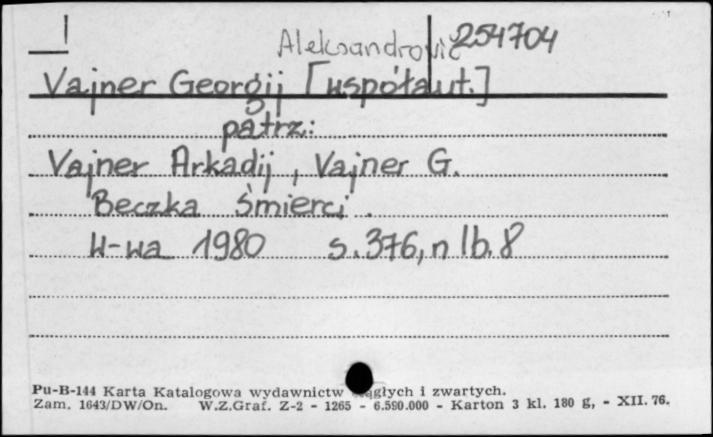 Aleksandrovič 254704
Vajner Georgij [współaut.]
patrz:
Vajner Arkadij, Vajner G.
Beczka śmierci.
W-wa 1980 s. 376, nlb. 8
Pu-B-144 Karta Katalogowa wydawnictw ągłych i zwartych.
Zam. 1643/DW/On. W.Z.Graf. Z-2 - 1265 - 6.590.000 - Karton 3 kl. 180 g, - XII. 76.